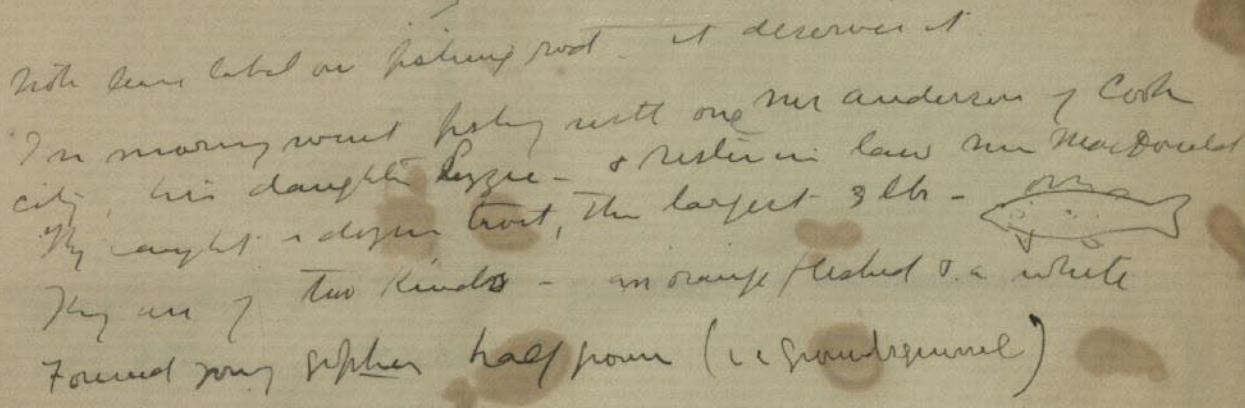 Note leave label on fishing rod - it deserves it.
In morning went fishing with one Mr Anderson of Cook
city, his daughter Lizzie - & sister in law Mrs MacDonald
They caught a dozen trout, the largest 3 lb -
They are of two kinds - an orange fleshed & a white
Found young gopher half grown (i e ground squirrel)